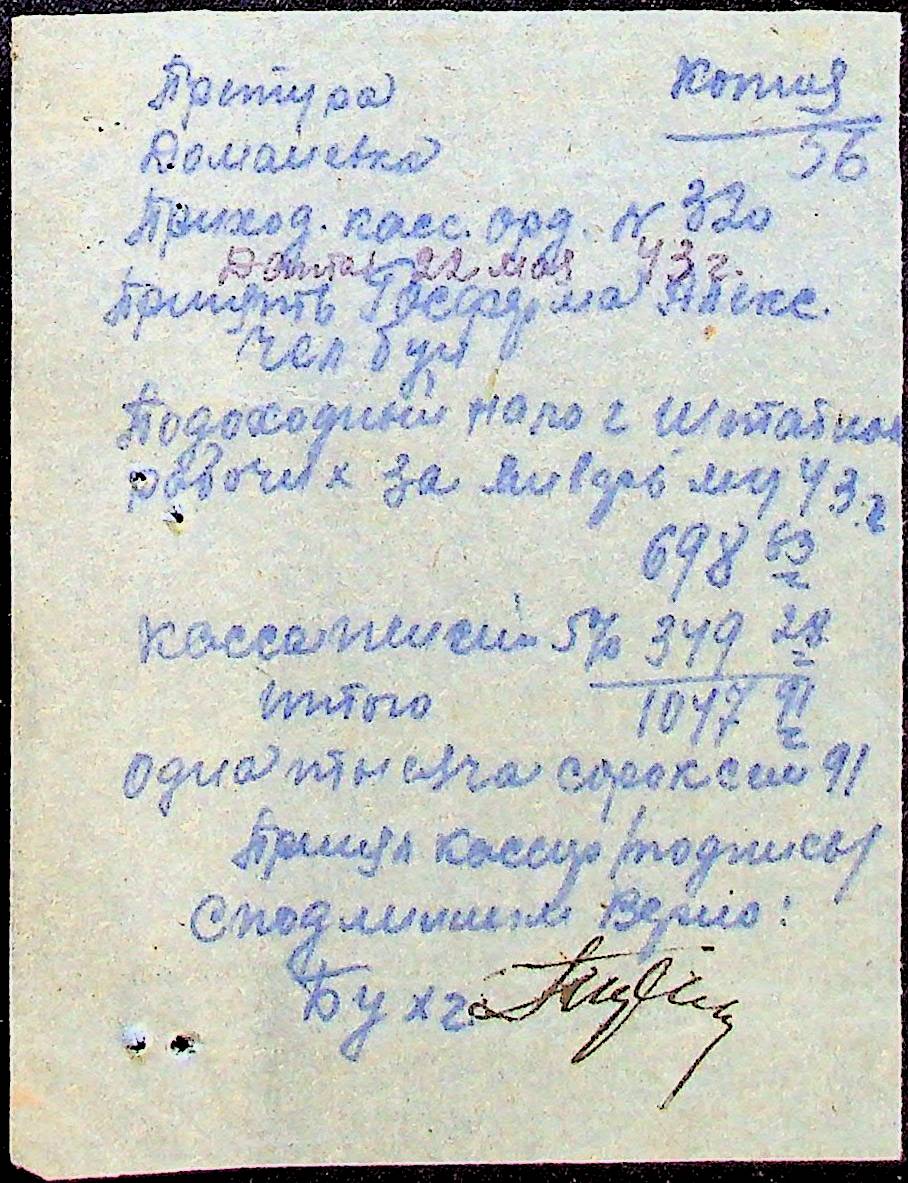 Претура
Копия
56
Доманевка
Приход. касс. орд. № 320
Датов 22 мая 43 г.
Принять Госферма Алекс.
Подоходный нало г Штатных
рабочих за январь м-ц 43.г
698 63
Касса пенсии 5% 349 28
итого 1047 91
одна тысяча сорок сем 91
Принял кассир /подпись/
С подлинным Верно:
Бухг.